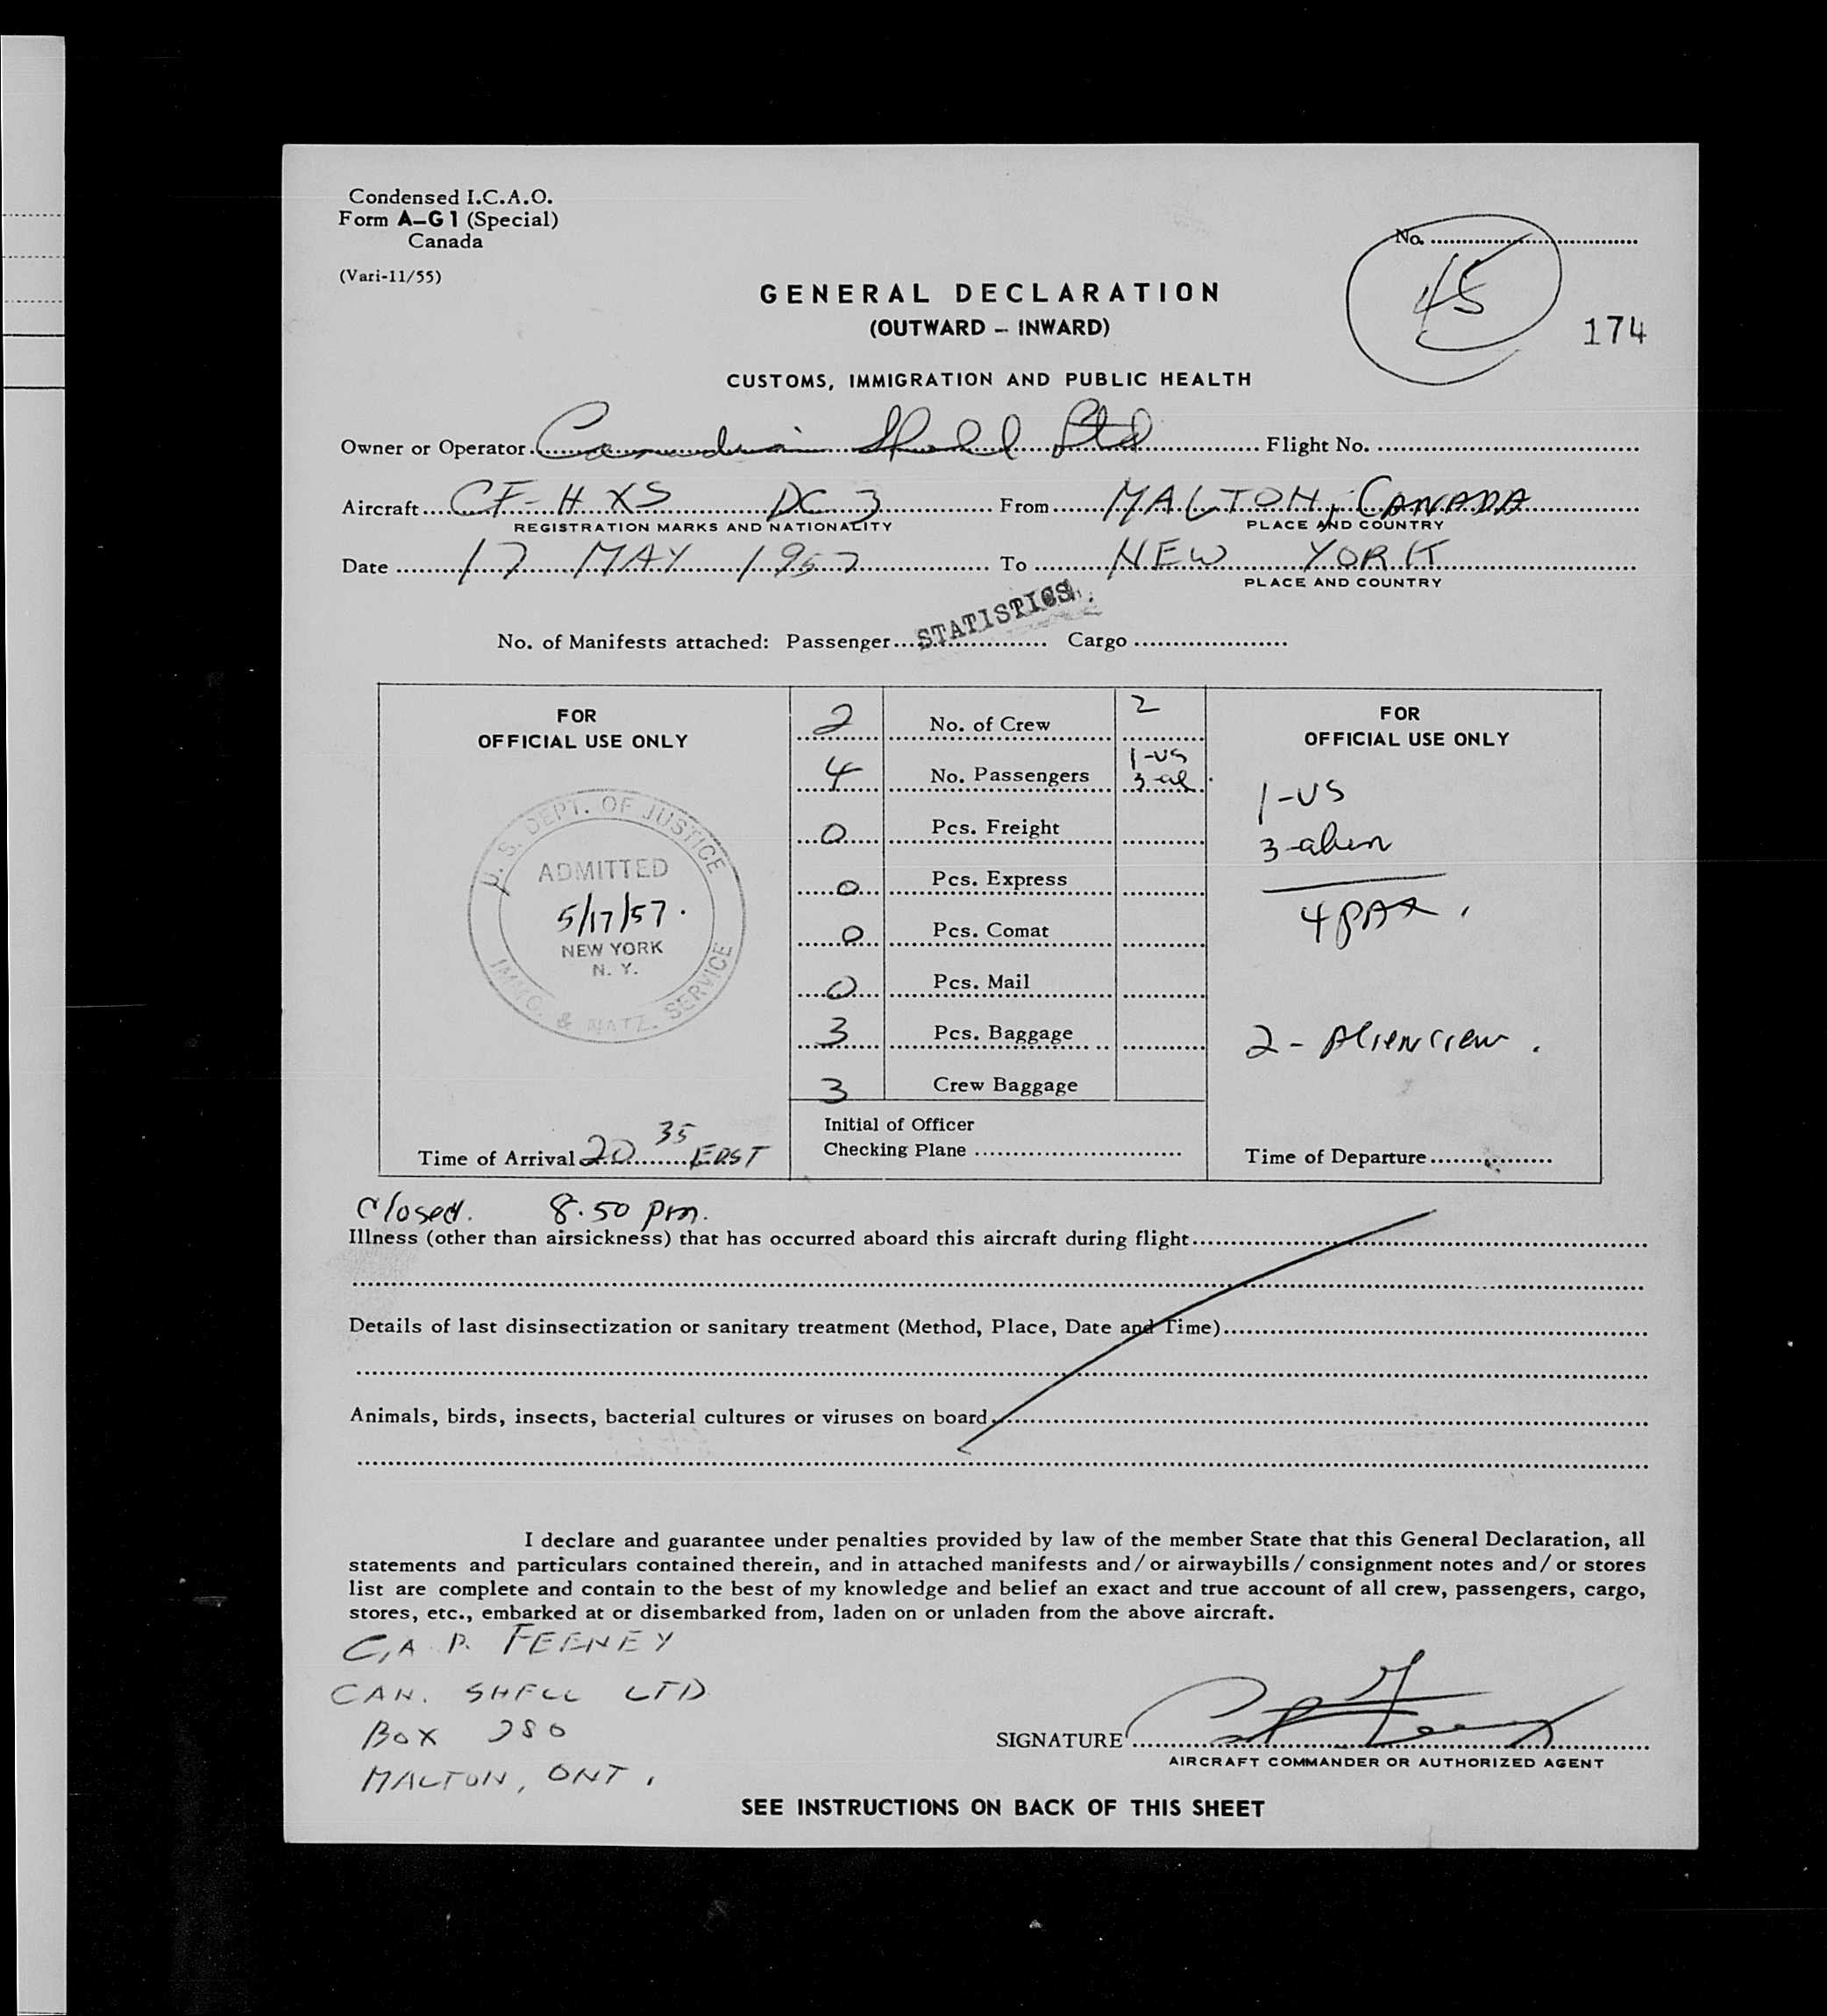 Condensed I.C.A.O.
Form A-G1 (Special)
Canada
(Vari-11/55)
No. ........
45
174
GENERAL DECLARATION
(OUTWARD – INWARD)
CUSTOMS, IMMIGRATION AND PUBLIC HEALTH
Owner or Operator Canadian Shell Ltd Flight No. ........
Aircraft CF-HXS DC 3 From MALTON, CANADA
REGISTRATION MARKS AND NATIONALITY PLACE AND COUNTRY
Date 17 MAY 1957 To NEW YORK
PLACE AND COUNTRY
STATISTICS
No. of Manifests attached: Passenger ........ Cargo ........
FOR OFFICIAL USE ONLY
U. S. DEPT. OF JUSTICE
ADMITTED
5/17/57.
NEW YORK
N. Y.
IMMG. & NATZ. SERVICE
Time of Arrival 20 35 EDST
2 No. of Crew 2
4 No. Passengers 1-US 3-al
0 Pcs. Freight
0 Pcs. Express
0 Pcs. Comat
0 Pcs. Mail
3 Pcs. Baggage
3 Crew Baggage
Initial of Officer
Checking Plane ........
FOR OFFICIAL USE ONLY
1-US
3-alien
4 pax.
2 - Alien crew.
Time of Departure ........
Closed. 8.50 pm.
Illness (other than airsickness) that has occurred aboard this aircraft during flight ........
Details of last disinsectization or sanitary treatment (Method, Place, Date and Time) ........
Animals, birds, insects, bacterial cultures or viruses on board ........
I declare and guarantee under penalties provided by law of the member State that this General Declaration, all
statements and particulars contained therein, and in attached manifests and/or airwaybills/consignment notes and/or stores
list are complete and contain to the best of my knowledge and belief an exact and true account of all crew, passengers, cargo,
stores, etc., embarked at or disembarked from, laden on or unladen from the above aircraft.
C.A.P. FEENEY
CAN. SHELL LTD
BOX 280
MALTON, ONT.
SIGNATURE ........
AIRCRAFT COMMANDER OR AUTHORIZED AGENT
SEE INSTRUCTIONS ON BACK OF THIS SHEET